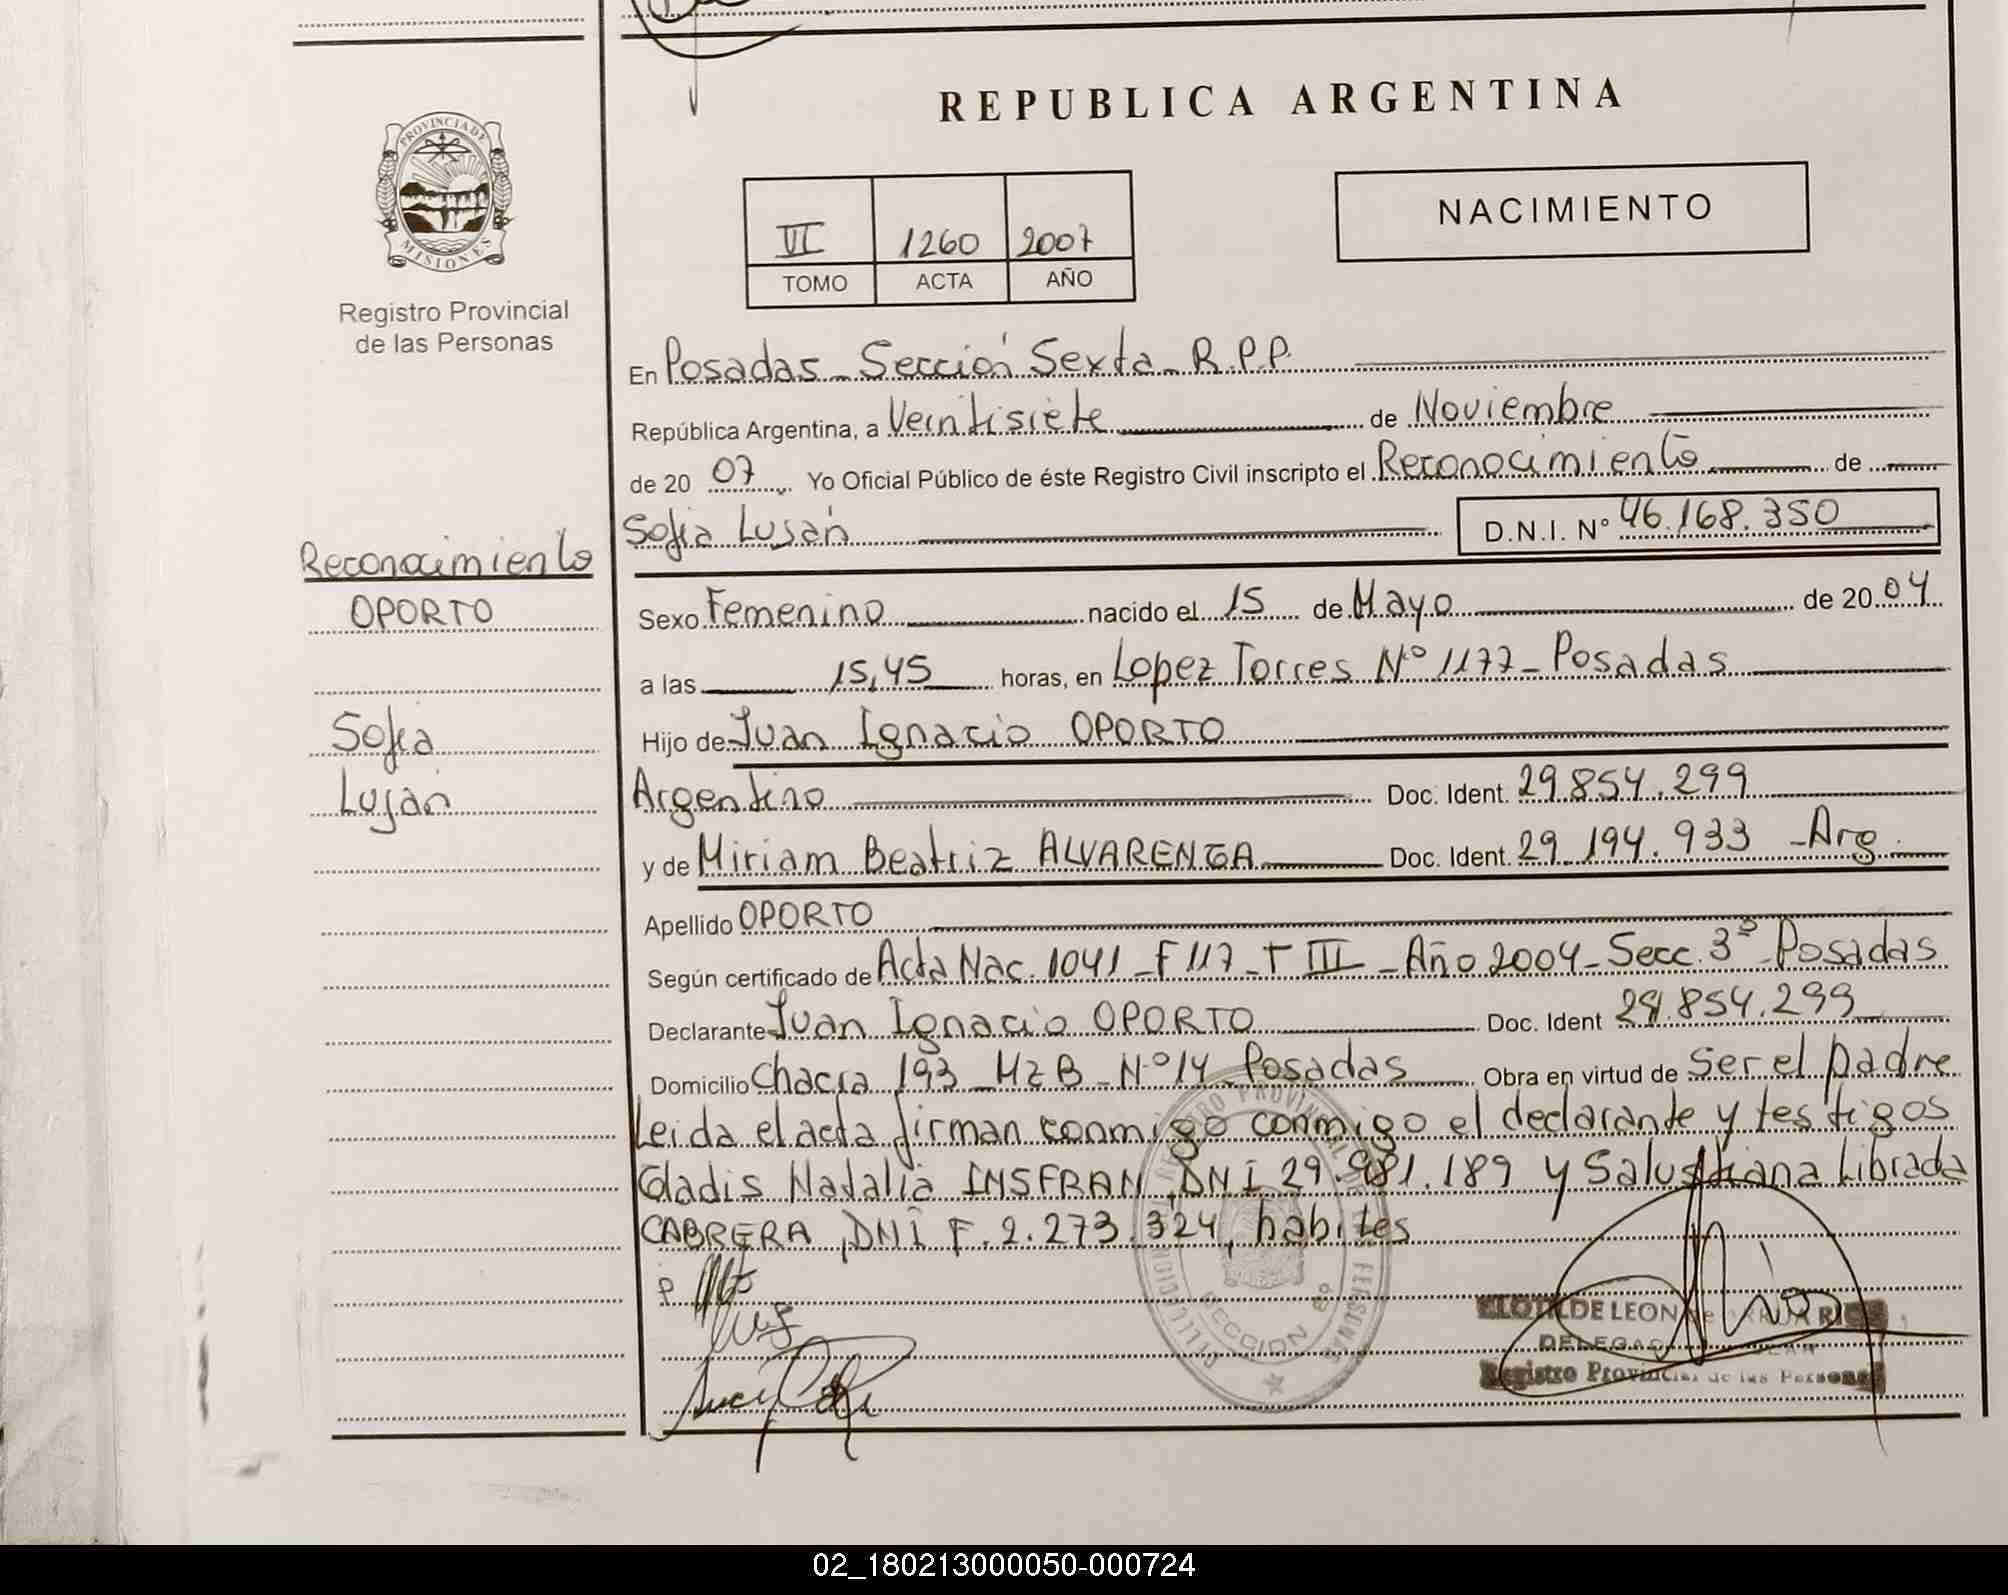 REPUBLICA ARGENTINA
PROVINCIA DE
MISIONES
Registro Provincial
de las Personas
VI 1260 2007
TOMO ACTA AÑO
NACIMIENTO
En Posadas - Sección Sexta - R.P.P.
República Argentina, a Veintisiete de Noviembre
de 20 07 Yo Oficial Público de éste Registro Civil inscripto el Reconocimiento de
Sofia Lusán D.N.I. Nº 46.168.350
Reconocimiento
OPORTO
Sofia
Luján
Sexo Femenino nacido el 15 de Mayo de 20 04
a las 15,45 horas, en Lopez Torres Nº 1177 - Posadas
Hijo de Juan Ignacio OPORTO
Argentino Doc. Ident. 29.854.299
y de Miriam Beatriz ALVARENGA Doc. Ident. 29.194.933 - Arg.
Apellido OPORTO
Según certificado de Acta Nac. 1041 - F 117 - T III - Año 2004 - Secc. 3ª Posadas
Declarante Juan Ignacio OPORTO Doc. Ident 29.854.299
Domicilio Chacra 193 - Mz B - Nº 14 - Posadas Obra en virtud de Ser el padre
Leida el acta firman conmigo conmigo el declarante y testigos
Gladis Natalia INSFRAN, DNI 29.981.189 y Salustiana Librada
CABRERA, DNI F. 2.273.324, habites
SECCION 6º
DE LEON de
Registro Provincial de las Personas
02_180213000050-000724